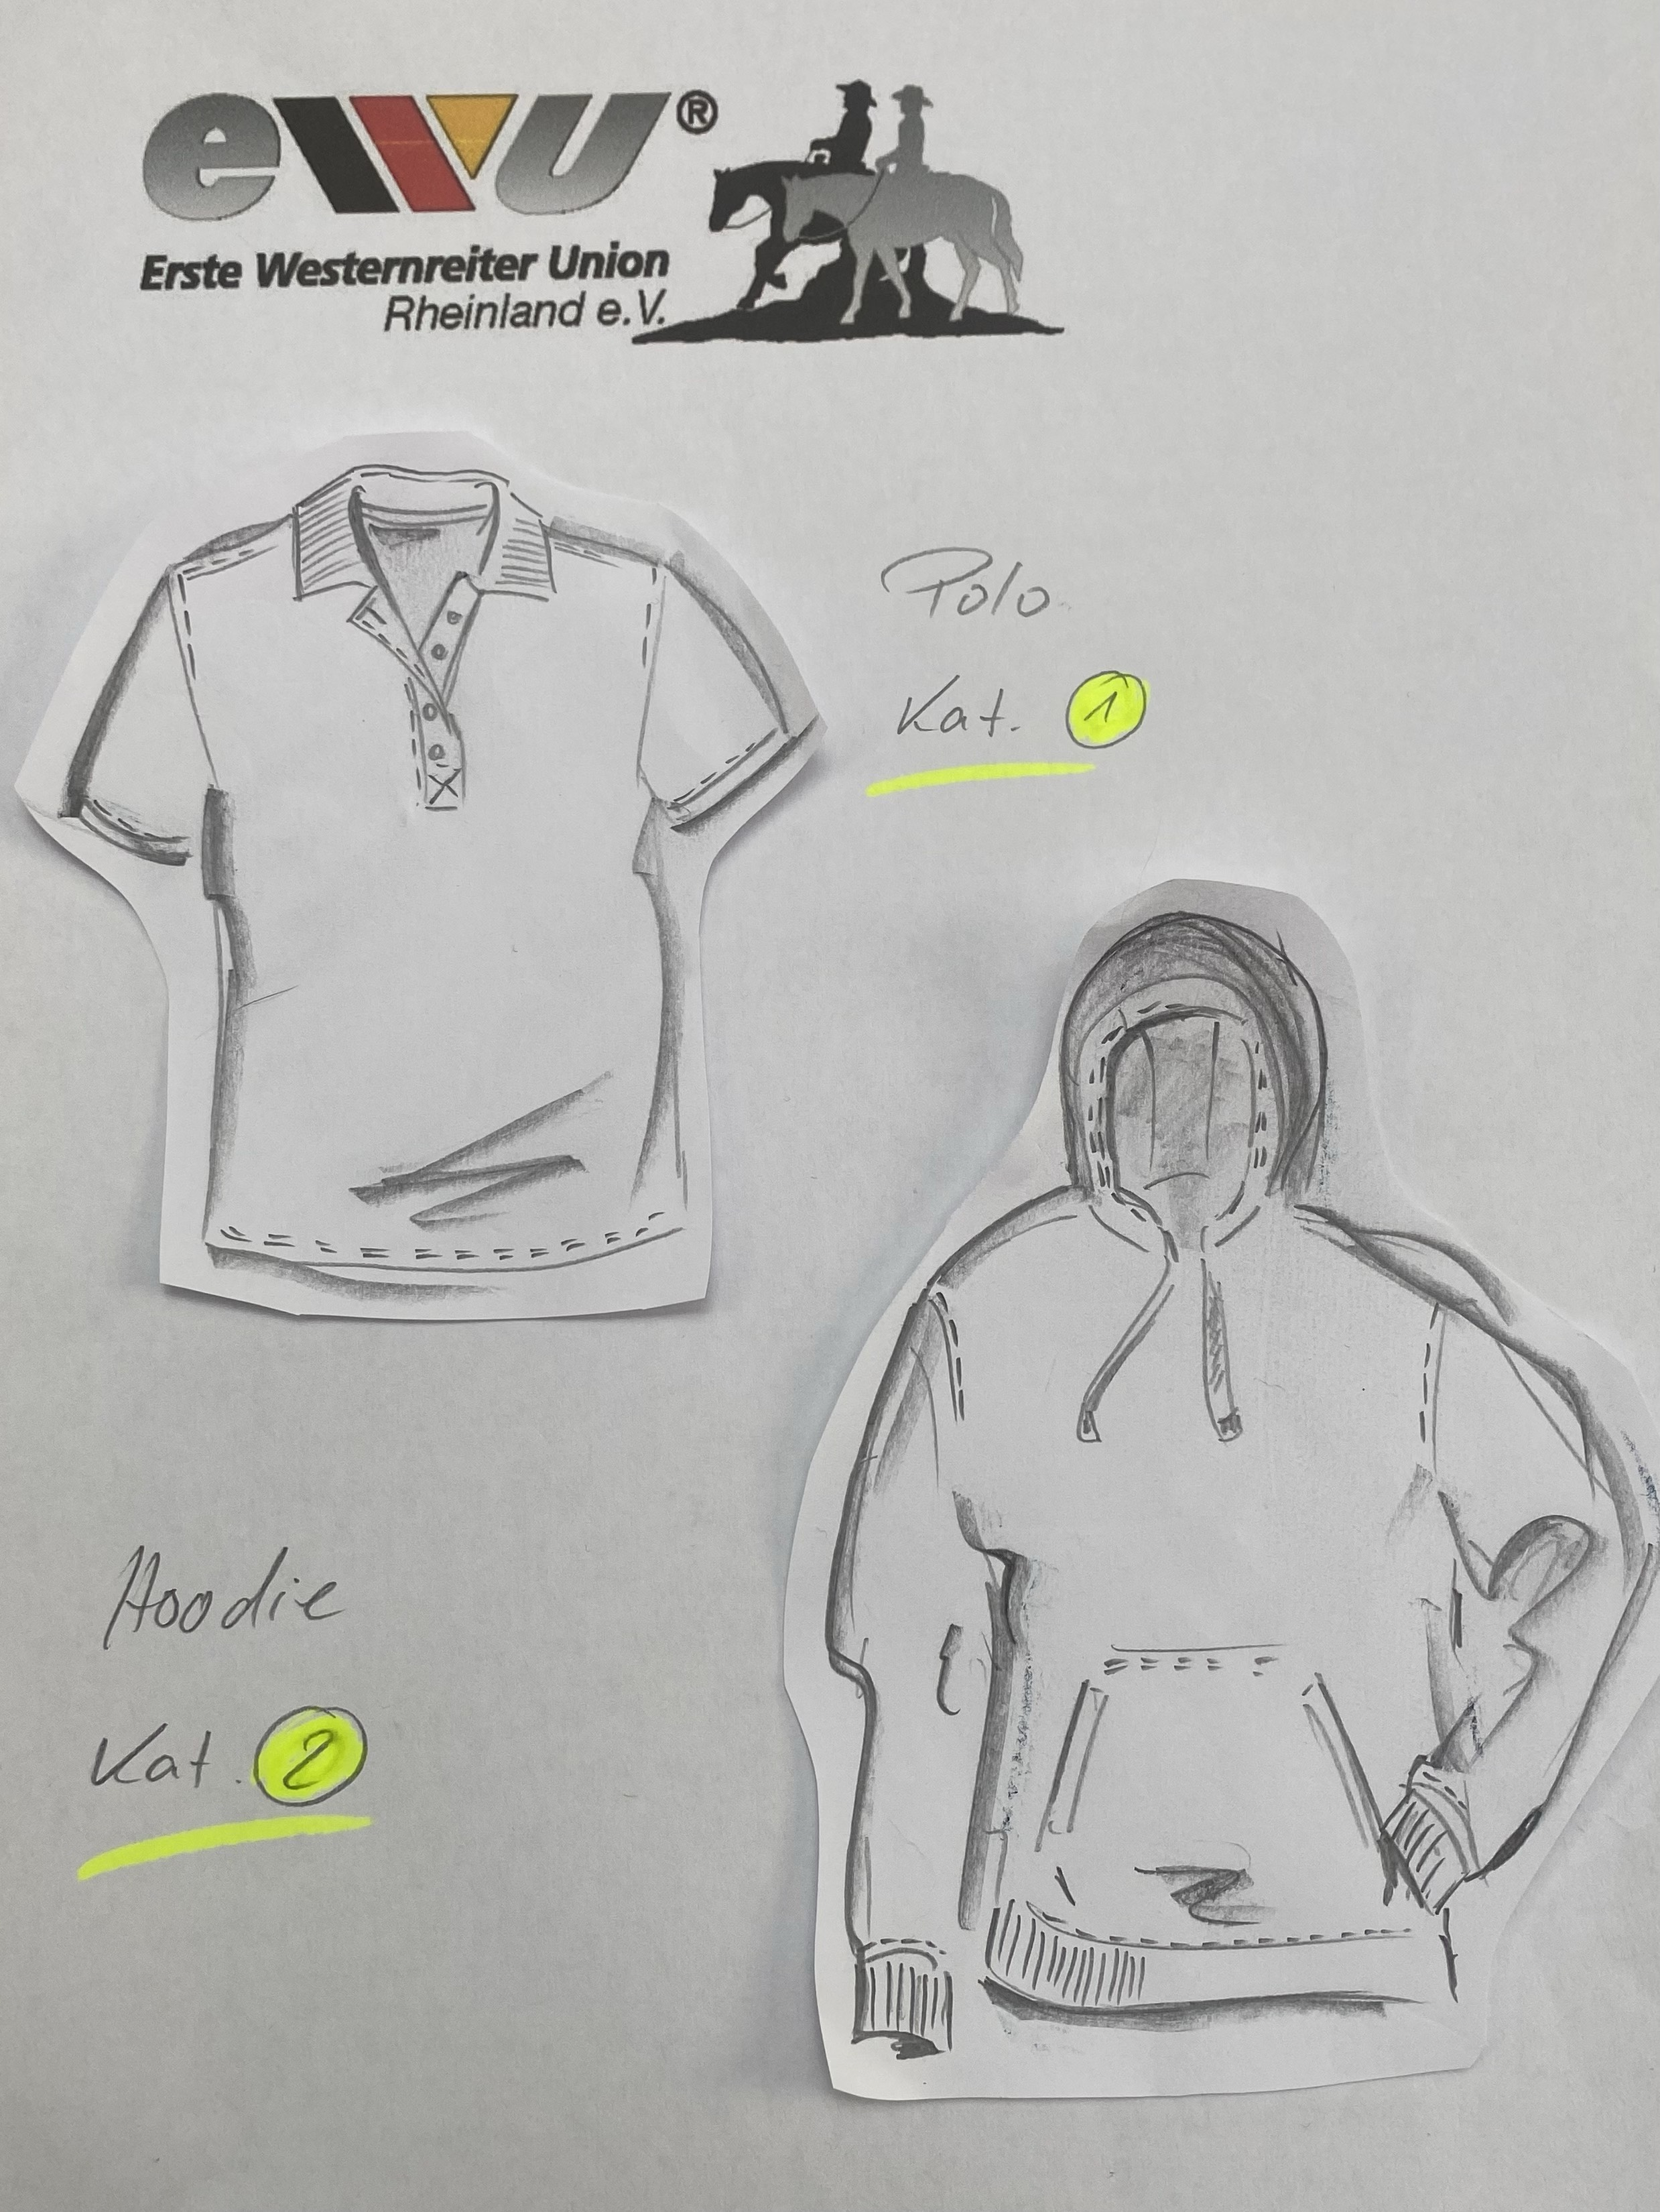 ewu®
Erste Westernreiter Union
Rheinland e.V.
Polo
Kat. 1
Hoodie
Kat. 2